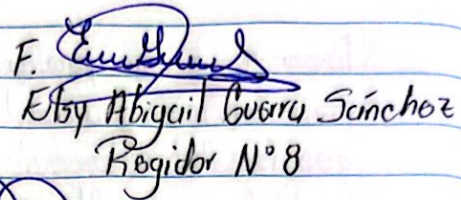 F.
Elsy Abigail Guerra Sánchez
Regidor N° 8